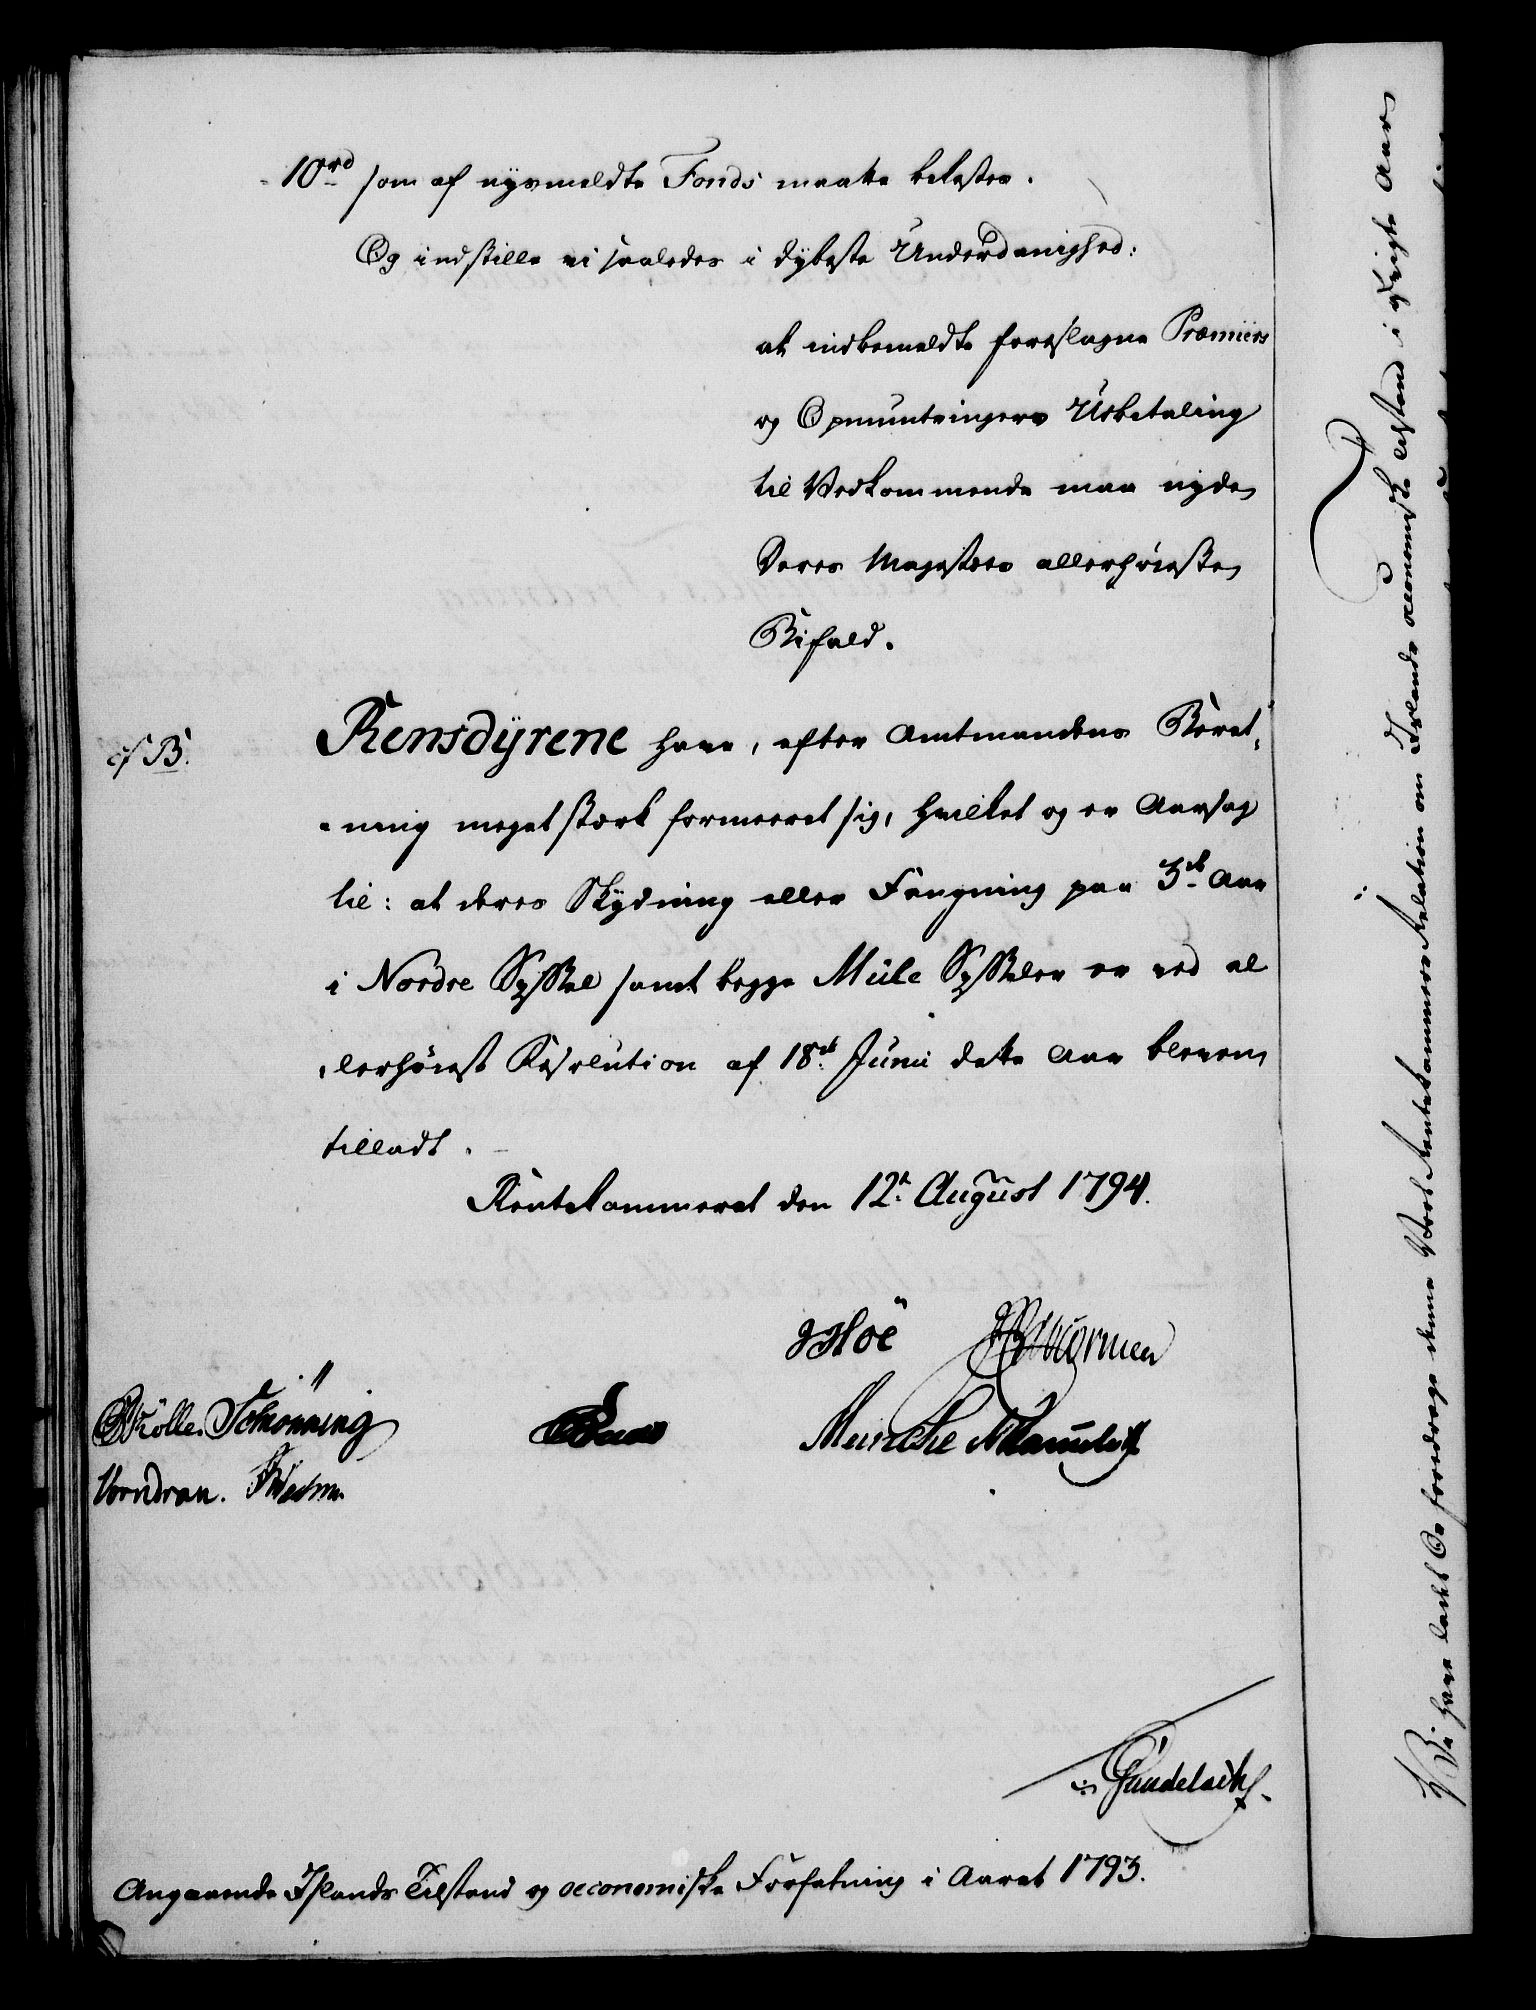 10rd som af nysmeldte Fonds maatte bekostes.
Og indstille vi saaledes i dybeste Underdanighed:
at indbemeldte foreslagne Præmiers
og Opmuntringers Udbetaling
til Vedkommende maa nyde
Deres Majestæts allerhøieste
Bifald.
cf B.
Rensdÿrene have, efter Amtmandens Beret-
-ning meget stærk formeeret sig, hvilket og er Aarsag
til: at deres Skydning eller Fangning paa 3de Aar
i Nordre Syssel samt begge Mule Sysseler er ved al
lerhøiest Resolution af 18de Junii dette Aar bleven
tilladt.
Rentekammeret den 12te August 1794.
Hoë Wormen
Schönning
Meinche
Vorndran.
Gundelach.
Angaaende Islands Tilstand og oeconomiske Forfatning i Aaret 1793.
Vi have ladet os foredrage denne Vort Rentekammers Relation om Islands oeconomiske Tilstand i Aar